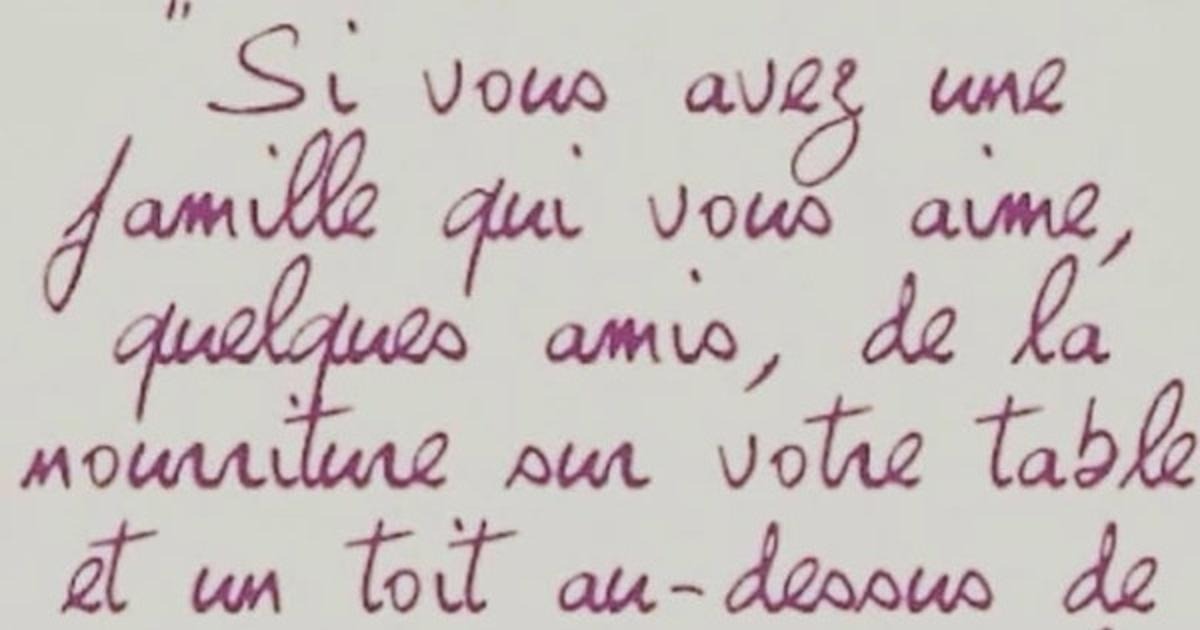 "Si vous avez une
famille qui vous aime,
quelques amis, de la
nourriture sur votre table
et un toit au-dessus de